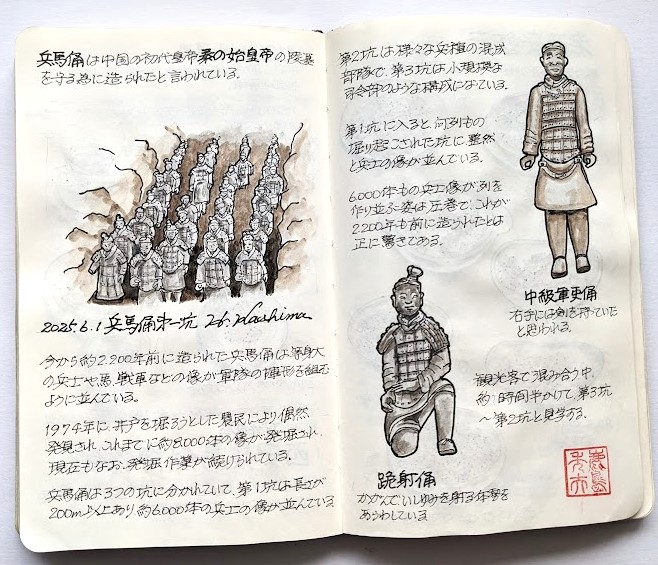 兵馬俑は中国の初代皇帝秦の始皇帝の陵墓
を守る為に造られたと言われている。
2025.6.1 兵馬俑第一坑 H. Kashima
今から約2,200年前に造られた兵馬俑は等身大
の兵士や馬、戦車などの像が軍隊の陣形を組む
ように並んでいる。
1974年に井戸を掘ろうとした農民により偶然
発見され、これまでに約8,000体の像が発掘され、
現在もなお、発掘作業が続けられている。
兵馬俑は3つの坑に分かれていて、第1坑は長さが
200m以上あり約6,000体の兵士の像が並んでいる
第2坑は様々な兵種の混成
部隊で、第3坑は小規模な
司令部のような構成になっている。
第1坑に入ると、何列もの
掘り起こされた坑に整然
と兵士の像が並んでいる。
6,000体もの兵士像が列を
作り並ぶ姿は圧巻で、これが
2,200年も前に造られたとは
正に驚きである。
中級軍吏俑
右手には剣を持っていた
と思われる。
観光客で混み合う中、
約1時間半かけて、第3坑
〜第2坑と見学する。
跪射俑
かがんでいしゆみを射る姿勢を
あらわしている